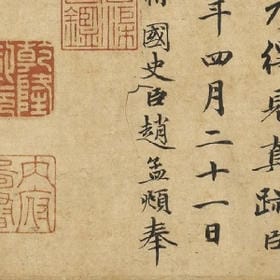 得見真跡臣
年四月二十一日
國史臣趙孟頫奉
乾隆
內府